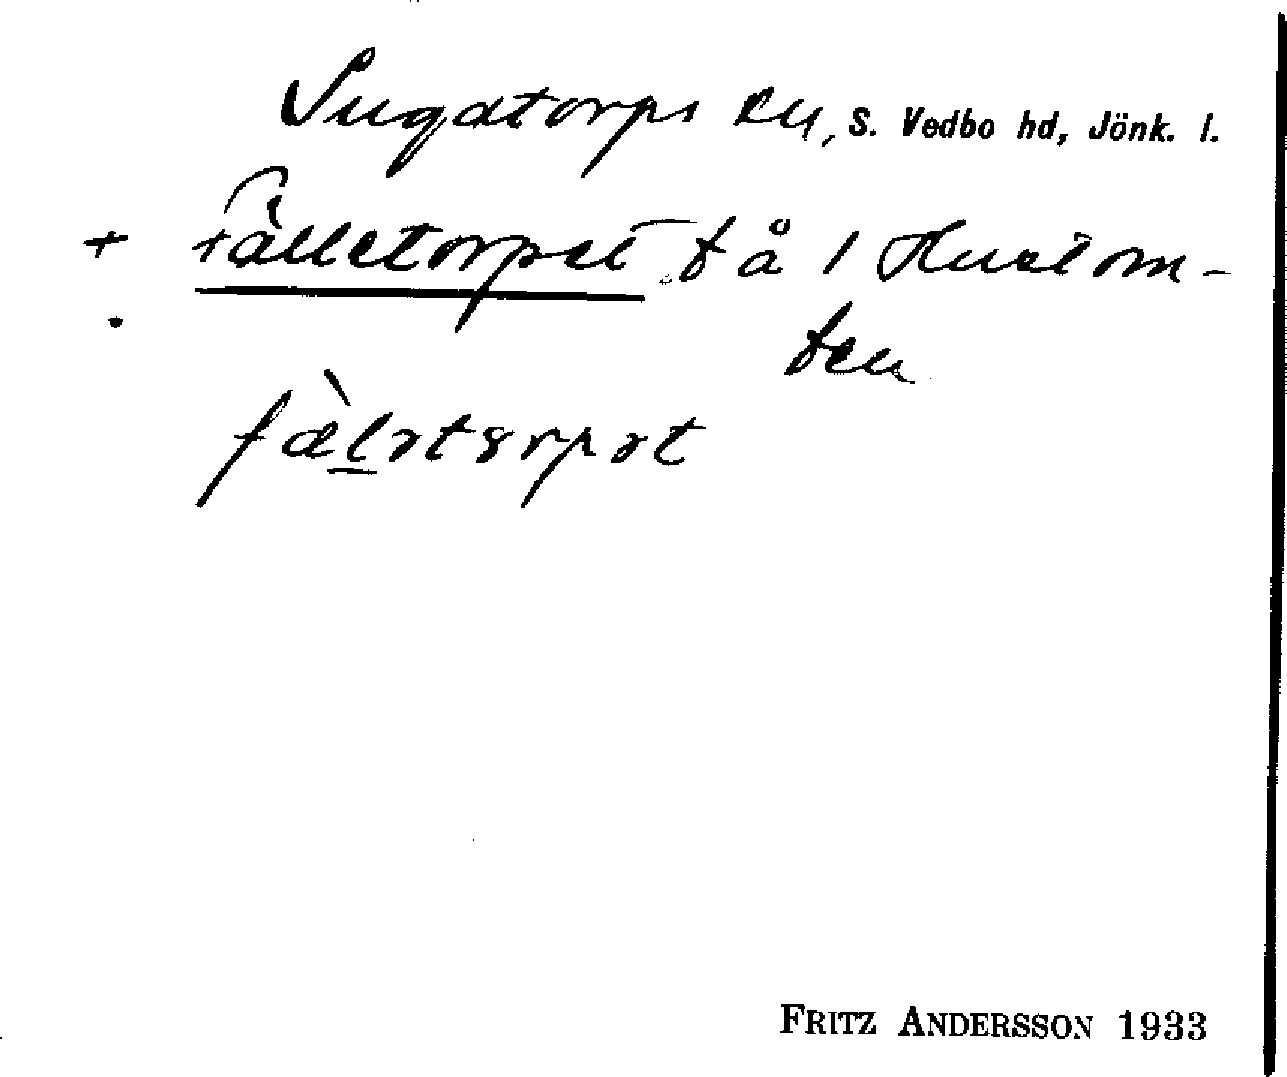 Ingatorps sn, S. Vedbo hd, Jönk. l.
+ Fälletorpet bå / Hustom-
.
ten
fæ̀lətɔrpət
FRITZ ANDERSSON 1933